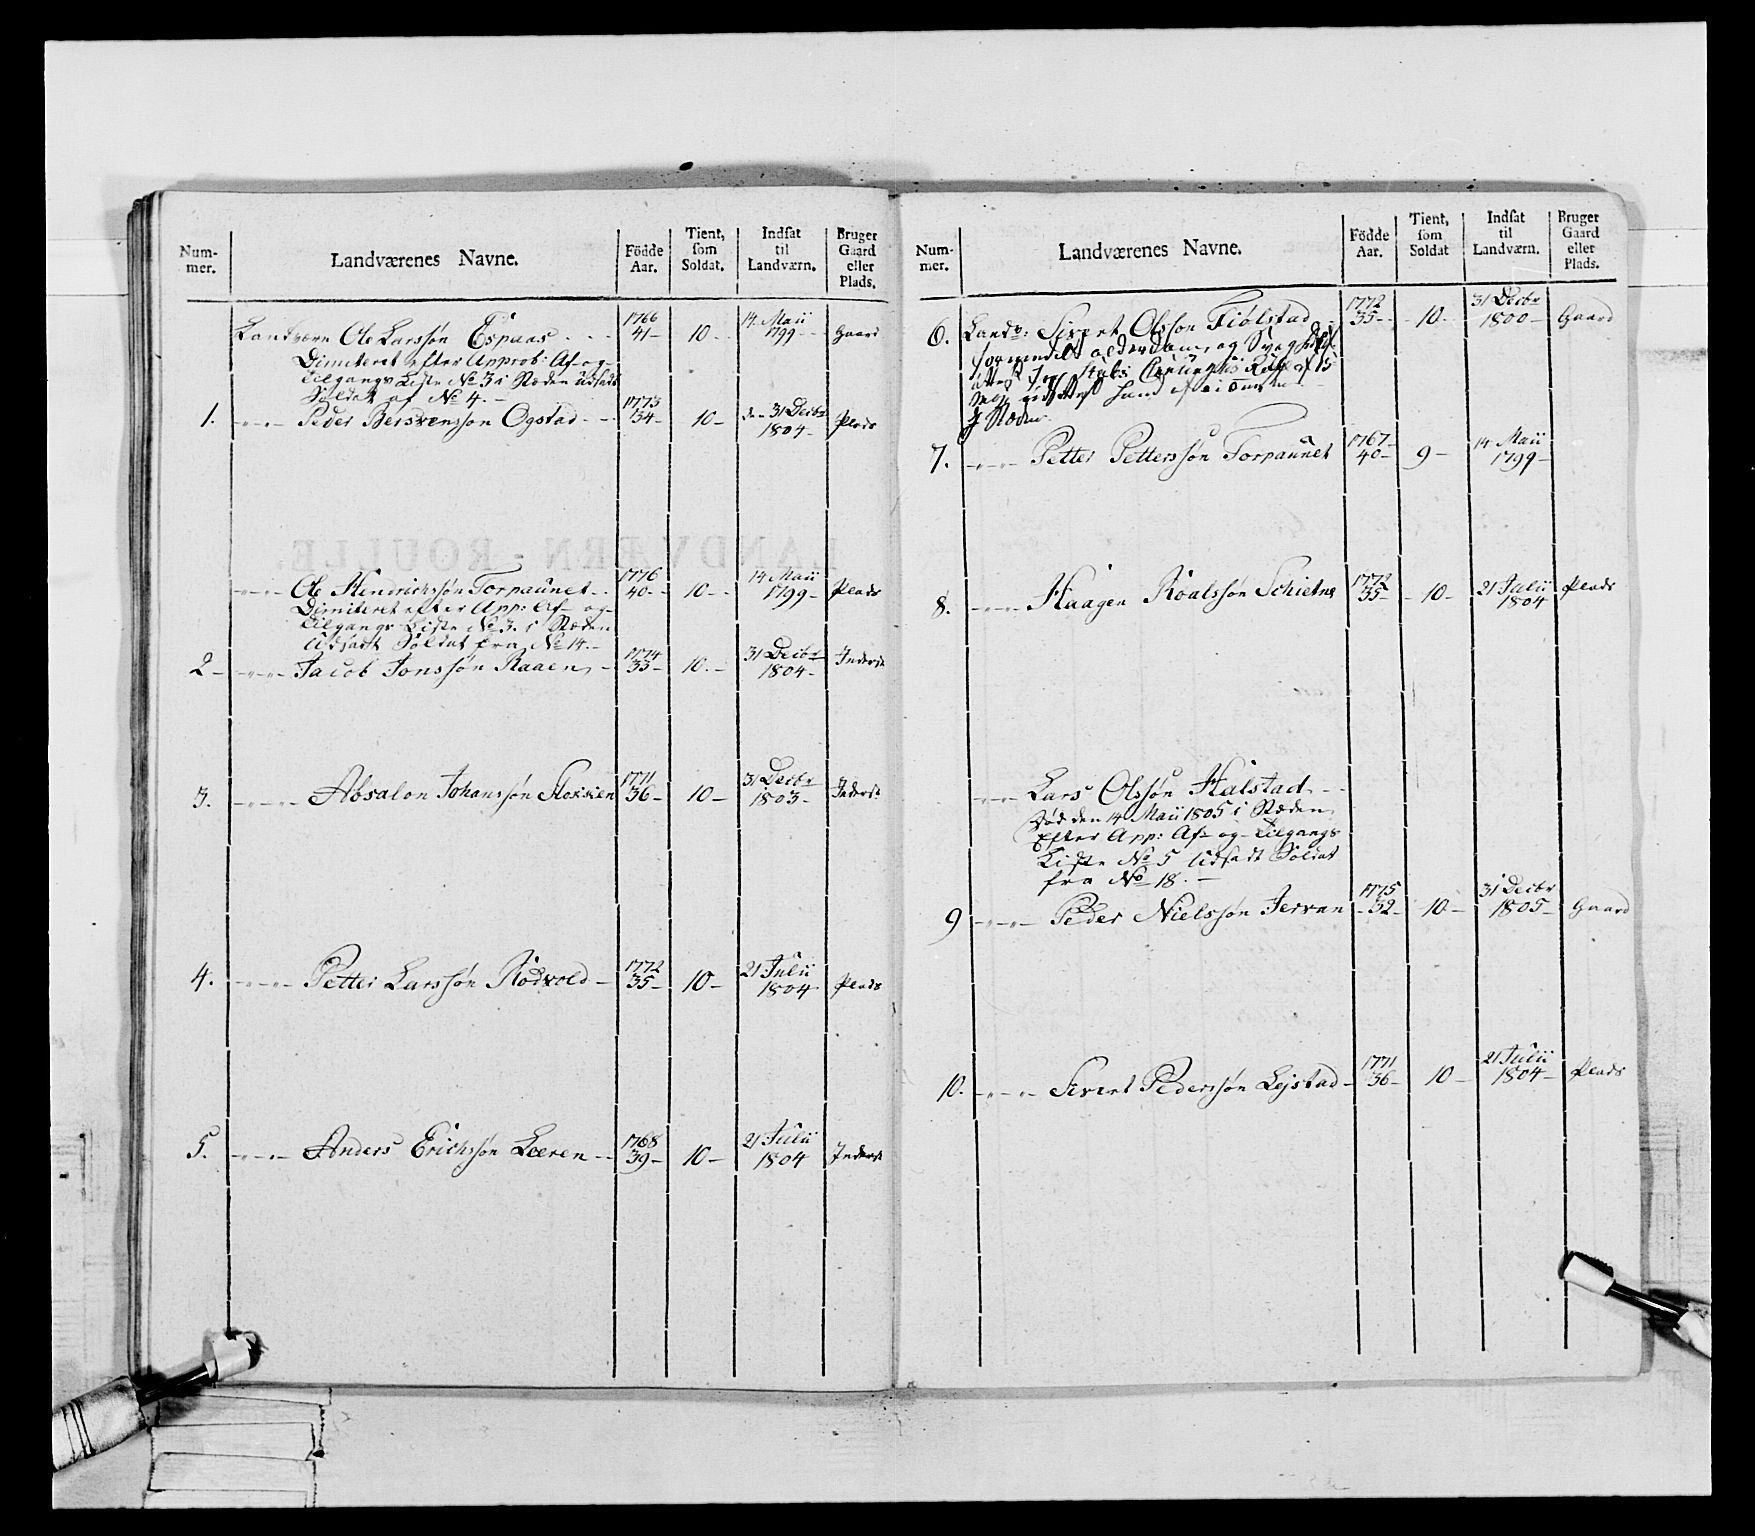 Num-
mer.
Landværenes Navne.
Födde
Aar.
Tient,
som
Soldat.
Indsat
til
Landværn.
Bruger
Gaard
eller
Plads.
Landværn Ole Larssøn Espaas 1766 41 10 14 Maii 1799 Gaard
Dimiteret efter Approb: Af- og
Tilgangs Liste No 3 i Stæden udsadt
Soldat af No 4.
1. Peder Bersvenssøn Ogstad 1773 34 10 den 31 Decbr 1804 Plads
Ole Hendrichssøn Torpaunet 1776 40 10 14 Maii 1799 Plads
Dimiteret efter App: Af- og
Tilgangs Liste No 3. i Stæden
Udsadt Soldat fra No 14.
2 Jacob Jonssøn Raaen 1774 33 10 31 Decbr 1804 Inderst
3. Absalon Johanssøn Stokken 1771 36 10 31 Decbr 1803 Inderst
4. Petter Larssøn Rødvold 1772 35 10 21 Julii 1804 Plads
5. Anders Erichssøn Læren 1768 39 10 21 Julii 1804 Inderst
Num-
mer.
Landværenes Navne.
Födde
Aar.
Tient,
som
Soldat
Indsat
til
Landværn.
Bruger
Gaard
eller
Plads.
6. Landv: Sivert Olsson Fiølstad 1772 35 10 31 Decbr 1800 Gaard
formedelst alderdom, og
7. Petter Petterssøn Torpaunet 1767 40 9 14 Maii 1799
8. Haagen Roalssøn Schietne 1772 35 10 21 Julii 1804 Plads
Lars Olssøn Halstad
Død den 14 Maii 1805 i Stæden
Efter App: Af- og Tilgangs
Liste No 5 Udsadt Soldat
fra No 18.
9 Peder Nielssøn Jervan 1775 32 10 31 Decbr 1805 Gaard
10. Sivert Pederssøn Lejstad 1771 36 10 21 Julii 1804 Plads